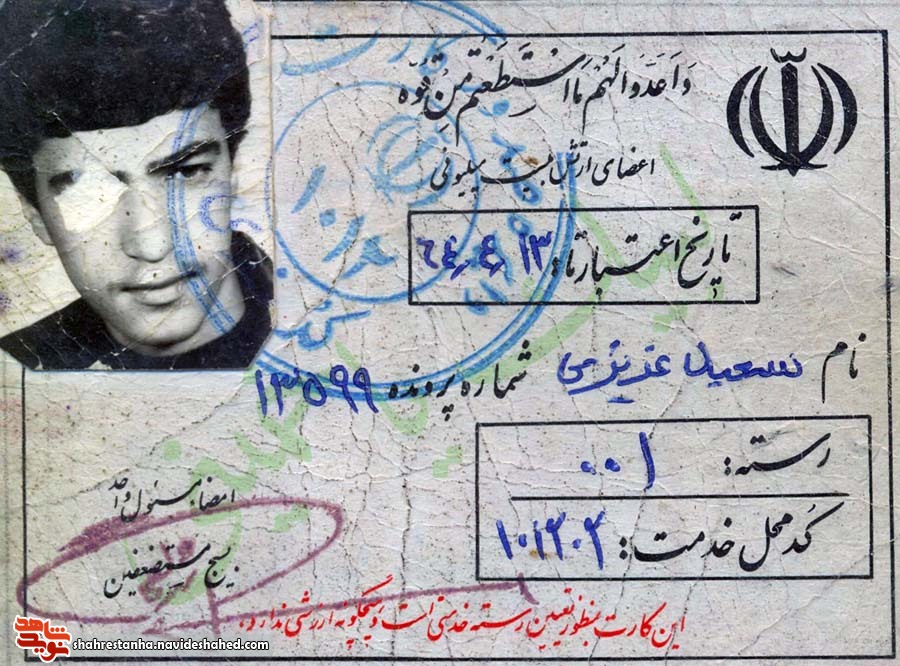 وَاَعِدّوا لَهُم مَا اسْتَطَعْتُم مِن قُوَّه
اعضای ارتش بیست میلیونی
تاریخ اعتبار تا: ۶۴٫۴٫۱۳
نام سعید عزیزی شماره پرونده ۱۳۵۹۹
رسته: ۰۰۱
کد محل خدمت: ۱۰۱۲۰۲
امضاء مسئول واحد
بسیج مستضعفین
این کارت بمنظور تعیین رسته خدمتی است و هیچگونه ارزشی ندارد.
نوید شاهد
shahrestanha.navideshahed.com